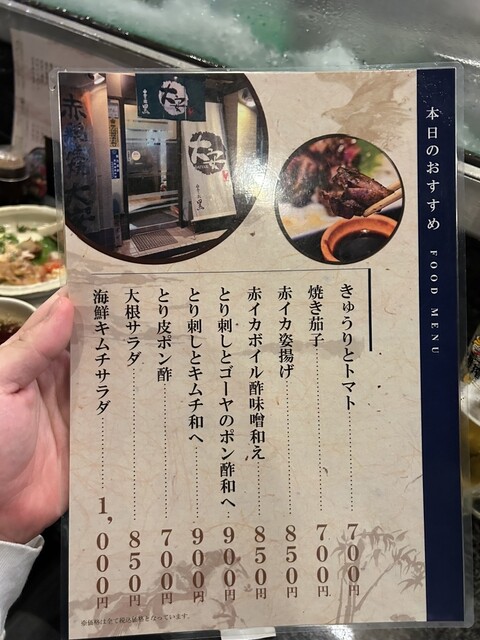 本日のおすすめ FOOD MENU
きゅうりとトマト 700円
焼き茄子 700円
赤イカ姿揚げ 850円
赤イカボイル酢味噌和え 850円
とり刺しとゴーヤのポン酢和へ 900円
とり刺しとキムチ和へ 900円
とり皮ポン酢 700円
大根サラダ 850円
海鮮キムチサラダ 1,000円
※価格は全て税込価格となっています。